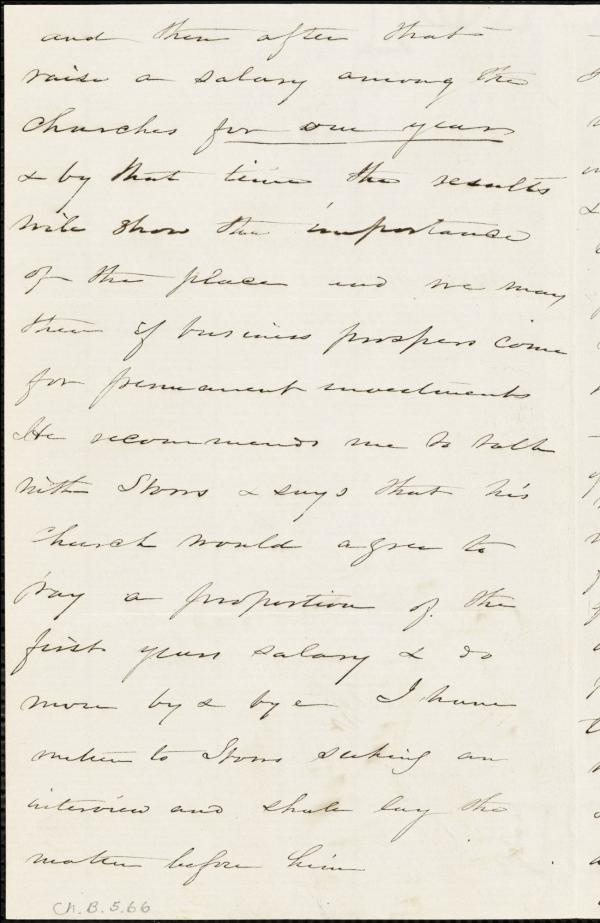 and then after that
raise a salary among the
churches for one year
& by that time the results
will show the importance
of the place and we may
then if business prospers come
for permanent investments
He recommends me to talk
with Storrs & says that his
church would agree to
pay a proportion of the
first years salary & do
more by & bye I have
written to Storrs seeking an
interview and shall lay the
matter before him
Ch.B.5.66